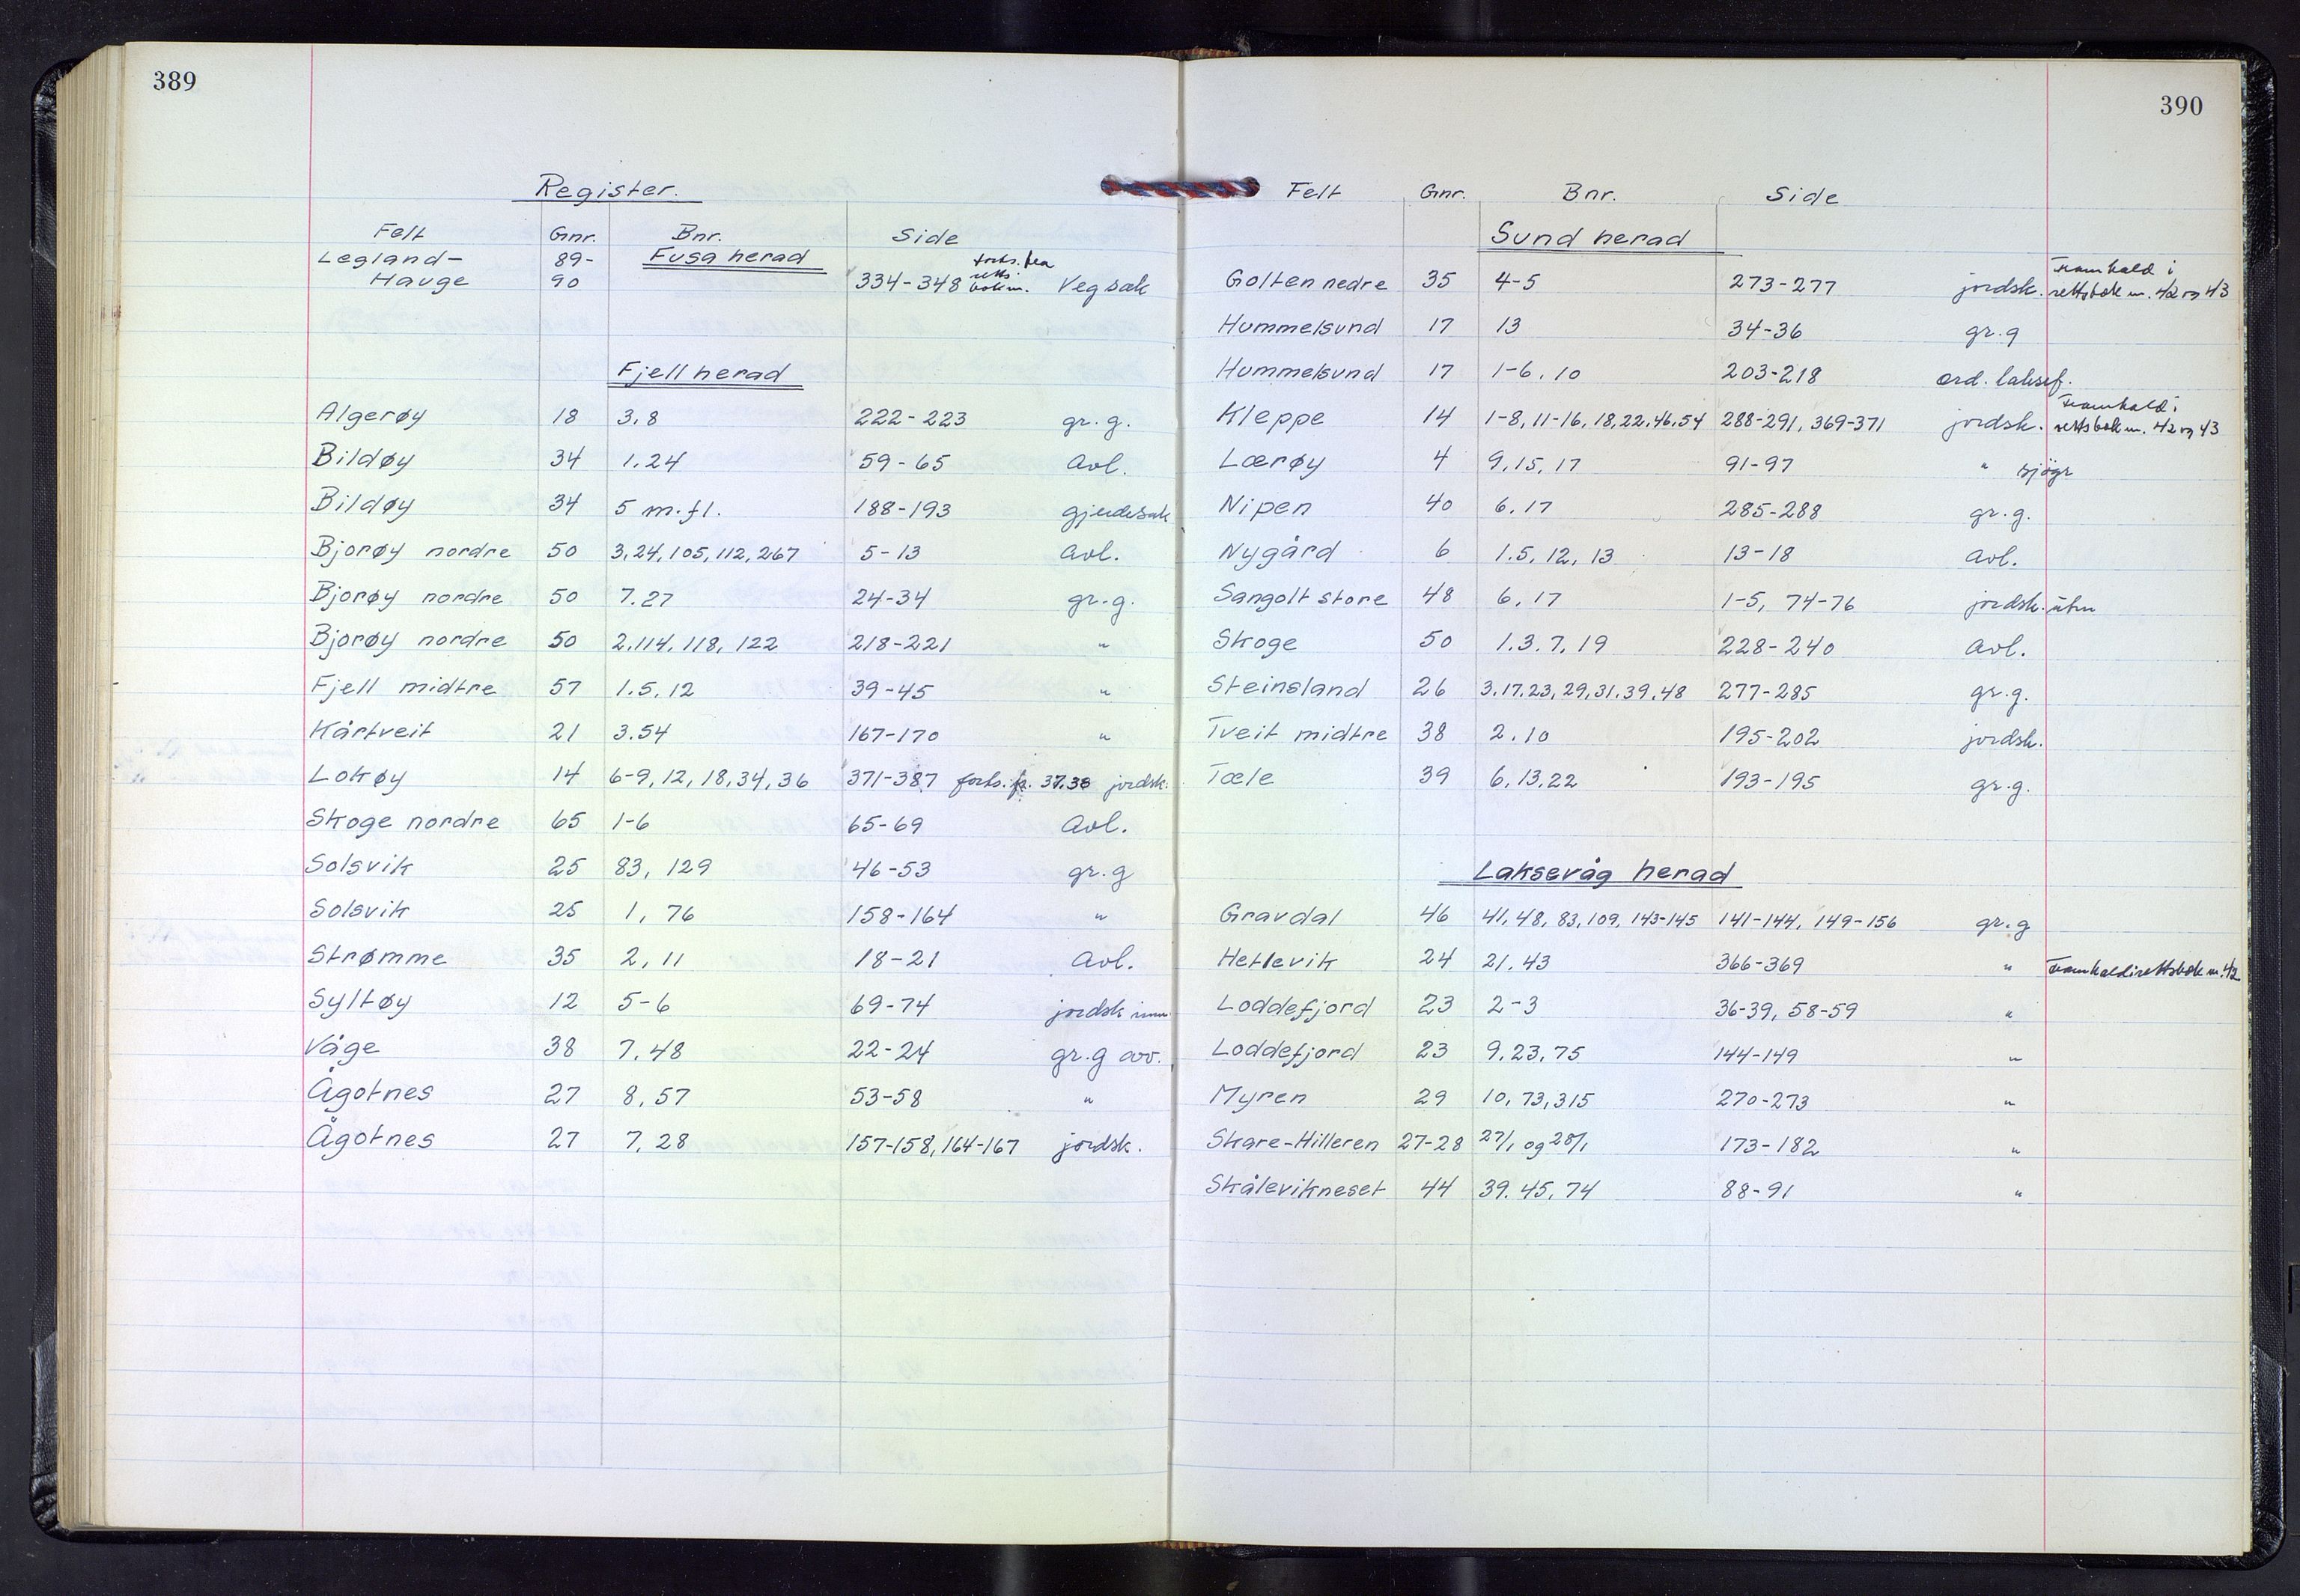 389
Register.
Felt Gnr. Bnr. Side
Fusa herad
Legland- 89-
Hauge 90 334-348 forts. fra retts- bok nr. Vegsak
Fjell herad
Algerøy 18 3.8 222-223 gr.g.
Bildøy 34 1.24 59-65 Avl.
Bildøy 34 5 m.fl. 188-193 gjerdesak
Bjorøy nordre 50 3,24,105,112,267 5-13 Avl.
Bjorøy nordre 50 7.27 24-34 gr.g.
Bjorøy nordre 50 2,114,118,122 218-221 "
Fjell midtre 57 1.5.12 39-45 "
Kårtveit 21 3.54 167-170 "
Lokøy 14 6-9,12,18,34,36 371-387 forts. fr. 37.38 jordsk.
Skoge nordre 65 1-6 65-69 Avl.
Solsvik 25 83, 129 46-53 gr.g
Solsvik 25 1, 76 158-164 "
Strømme 35 2, 11 18-21 Avl.
Syltøy 12 5-6 69-74 jordsk
Våge 38 7.48 22-24 gr.g avv.
Ågotnes 27 8, 57 53-58 "
Ågotnes 27 7, 28 157-158, 164-167 jordsk.
390
Felt Gnr. Bnr. Side
Sund herad
Golten nedre 35 4-5 273-277 jordsk. Framhald i rettsbok nr. 42 og 43
Hummelsund 17 13 34-36 gr.g
Hummelsund 17 1-6.10 203-218 ord. laksef.
Kleppe 14 1-8, 11-16, 18,22,46,54 288-291, 369-371 jordsk. Framhald i rettsbok nr. 42 og 43
Lærøy 4 9,15,17 91-97 " sjøgr
Nipen 40 6.17 285-288 gr.g.
Nygård 6 1.5, 12, 13 13-18 Avl.
Sangolt store 48 6, 17 1-5, 74-76 jordsk. utm
Skoge 50 1.3.7.19 228-240 Avl.
Steinsland 26 3.17.23,29,31.39,48 277-285 gr.g.
Tveit midtre 38 2.10 195-202 jordsk.
Tæle 39 6,13,22 193-195 gr.g.
Laksevåg herad
Gravdal 46 41, 48, 83, 109, 143-145 141-144, 149-156 gr.g
Hetlevik 24 21, 43 366-369 " Framhald i rettsbok nr. 42
Loddefjord 23 2-3 36-39, 58-59 "
Loddefjord 23 9,23,75 144-149 "
Myren 29 10, 73, 315 270-273 "
Skare-Hilleren 27-28 27/1 og 28/1 173-182 "
Skålevikneset 44 39.45, 74 88-91 "